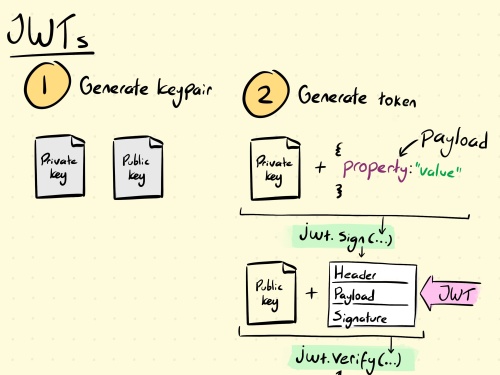 JWTs
1 Generate keypair
Private key
Public key
2 Generate token
Private key
+
{
property:"value"
}
Payload
jwt.sign(...)
Public key
+
Header
Payload
Signature
JWT
jwt.verify(...)